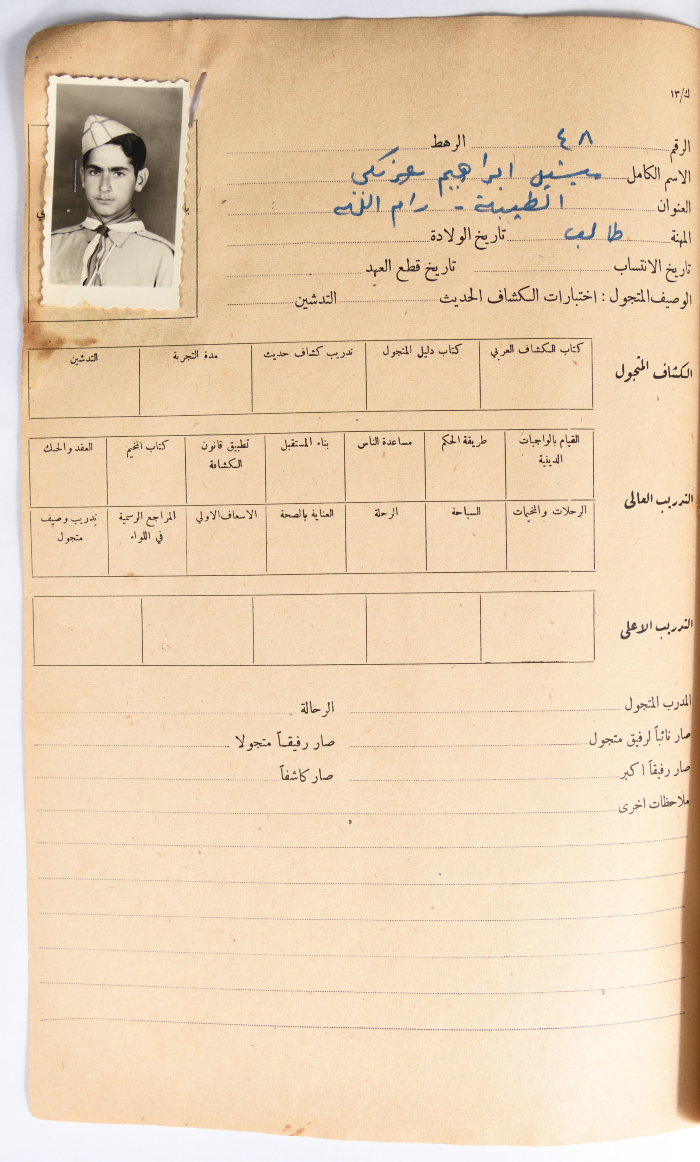 ك/١٣
الرقم ٤٨ الرهط
الاسم الكامل ميشيل ابراهيم
العنوان الطيبة - رام الله
المهنة طالب تاريخ الولادة
تاريخ الانتساب تاريخ قطع العهد
الوصيف المتجول : اختبارات الكشاف الحديث التدشين
الكشاف المتجول
كتاب الكشاف العربي كتاب دليل المتجول تدريب كشاف حديث مدة التجربة التدشين
التدريب العالي
القيام بالواجبات الدينية طريقة الحكم مساعدة الناس بناء المستقبل تطبيق قانون الكشافة كتاب المخيم العقد والحبك
الرحلات والمخيمات السباحة الرحلة العناية بالصحة الاسعاف الاولي المراجع الرسمية في اللواء تدريب وصيف متجول
التدريب الاعلى
المدرب المتجول الرحالة
صار نائباً لرفيق متجول صار رفيقـاً متجولا
صار رفيقاً اكبر صار كاشفاً
ملاحظات اخرى